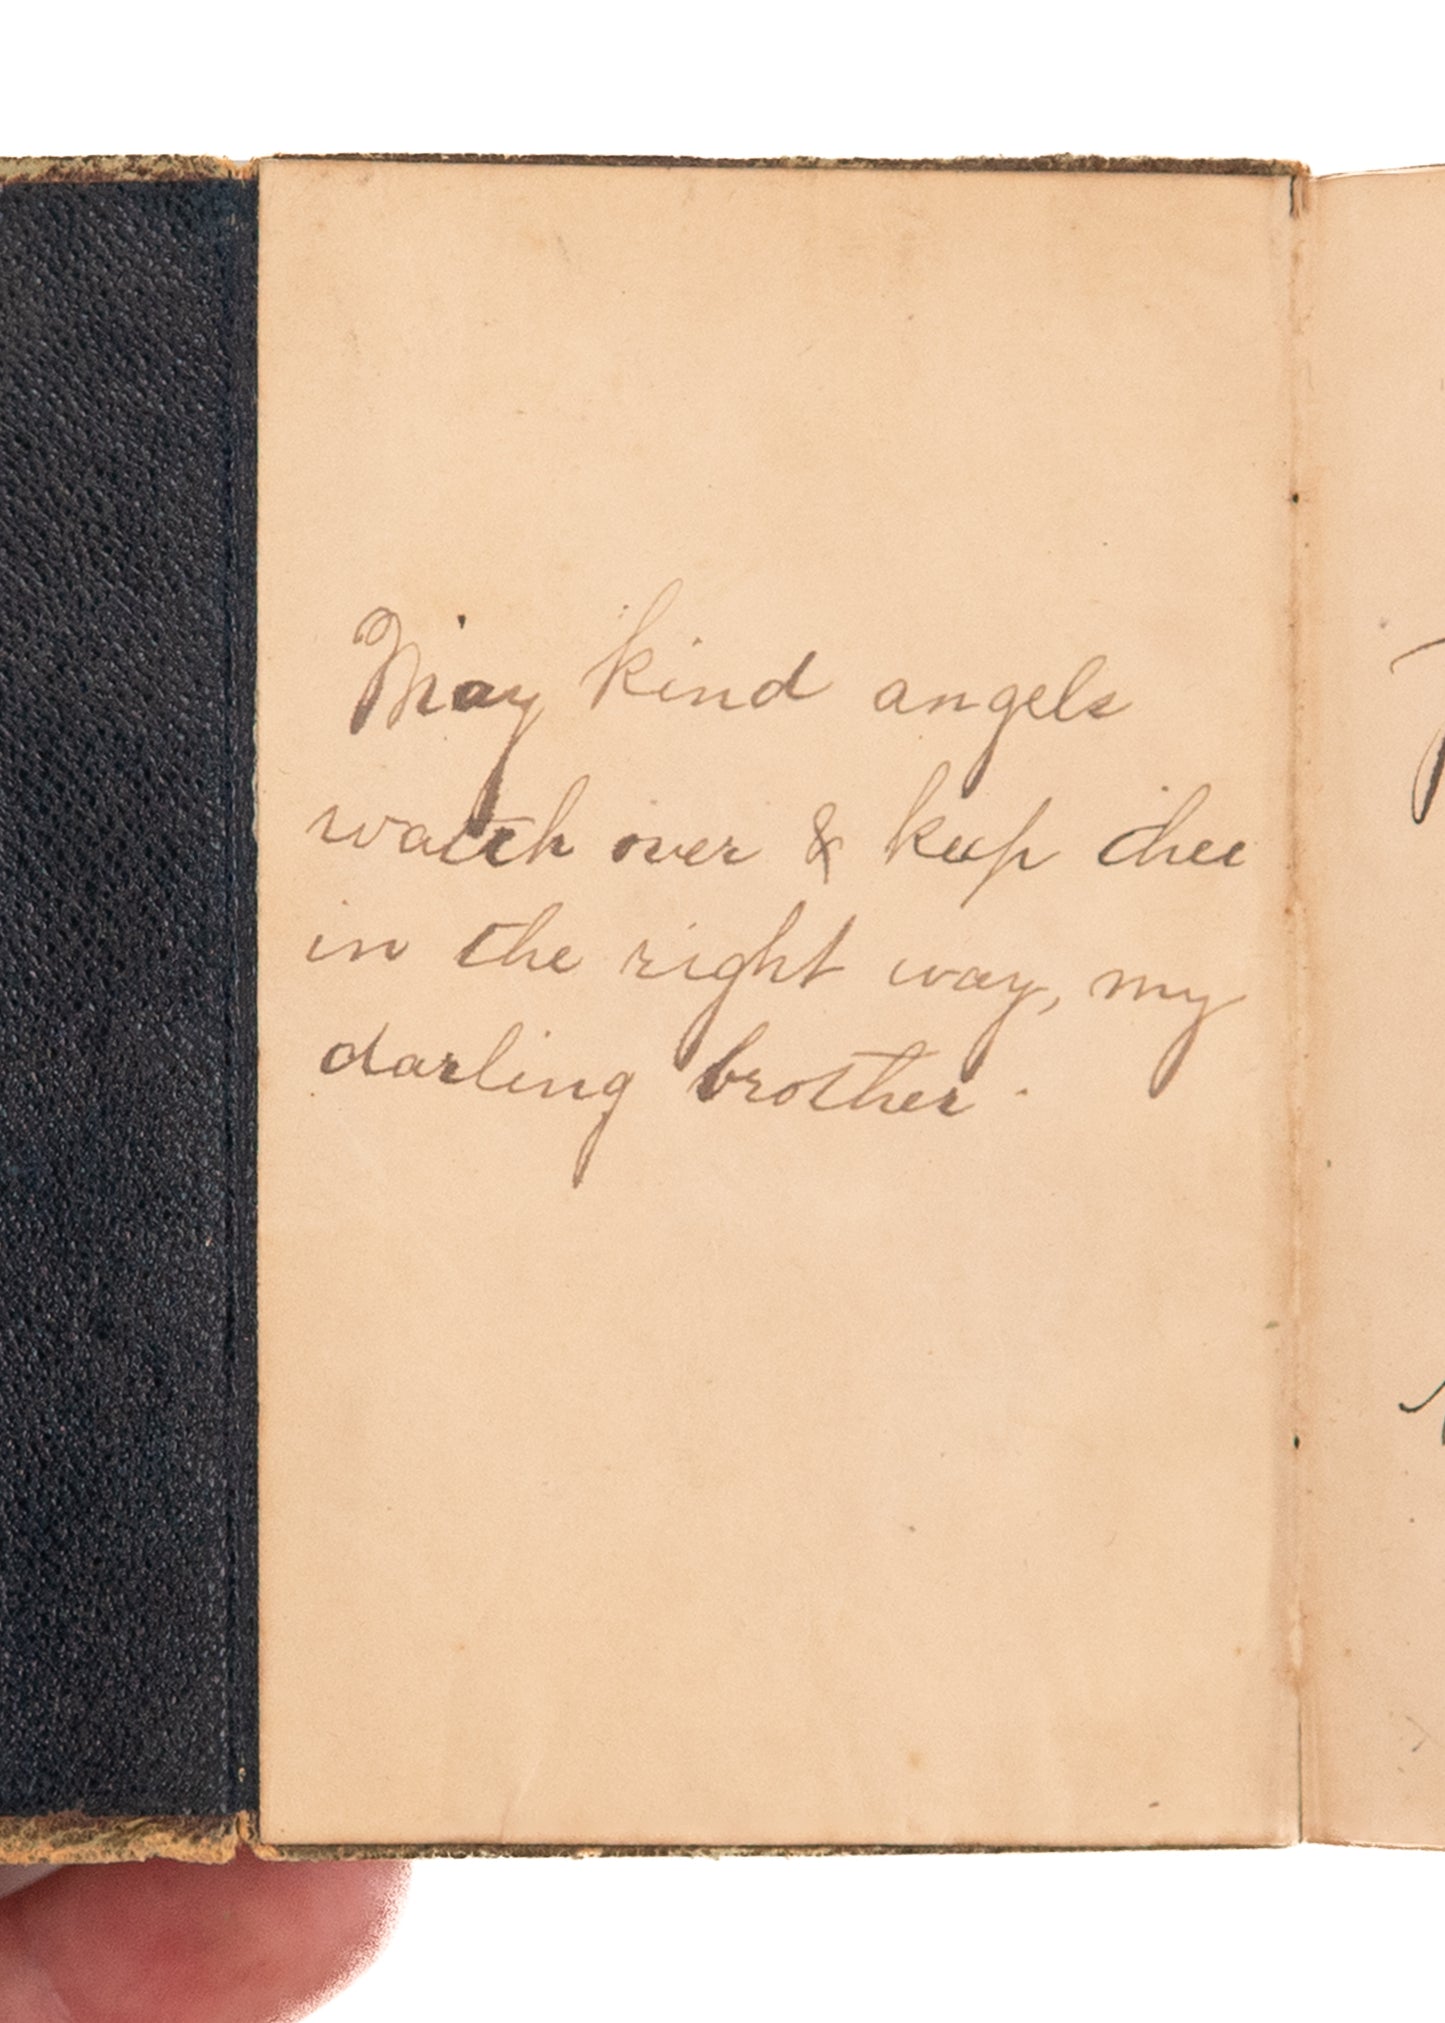 May kind angels
watch over & keep thee
in the right way, my
darling brother.